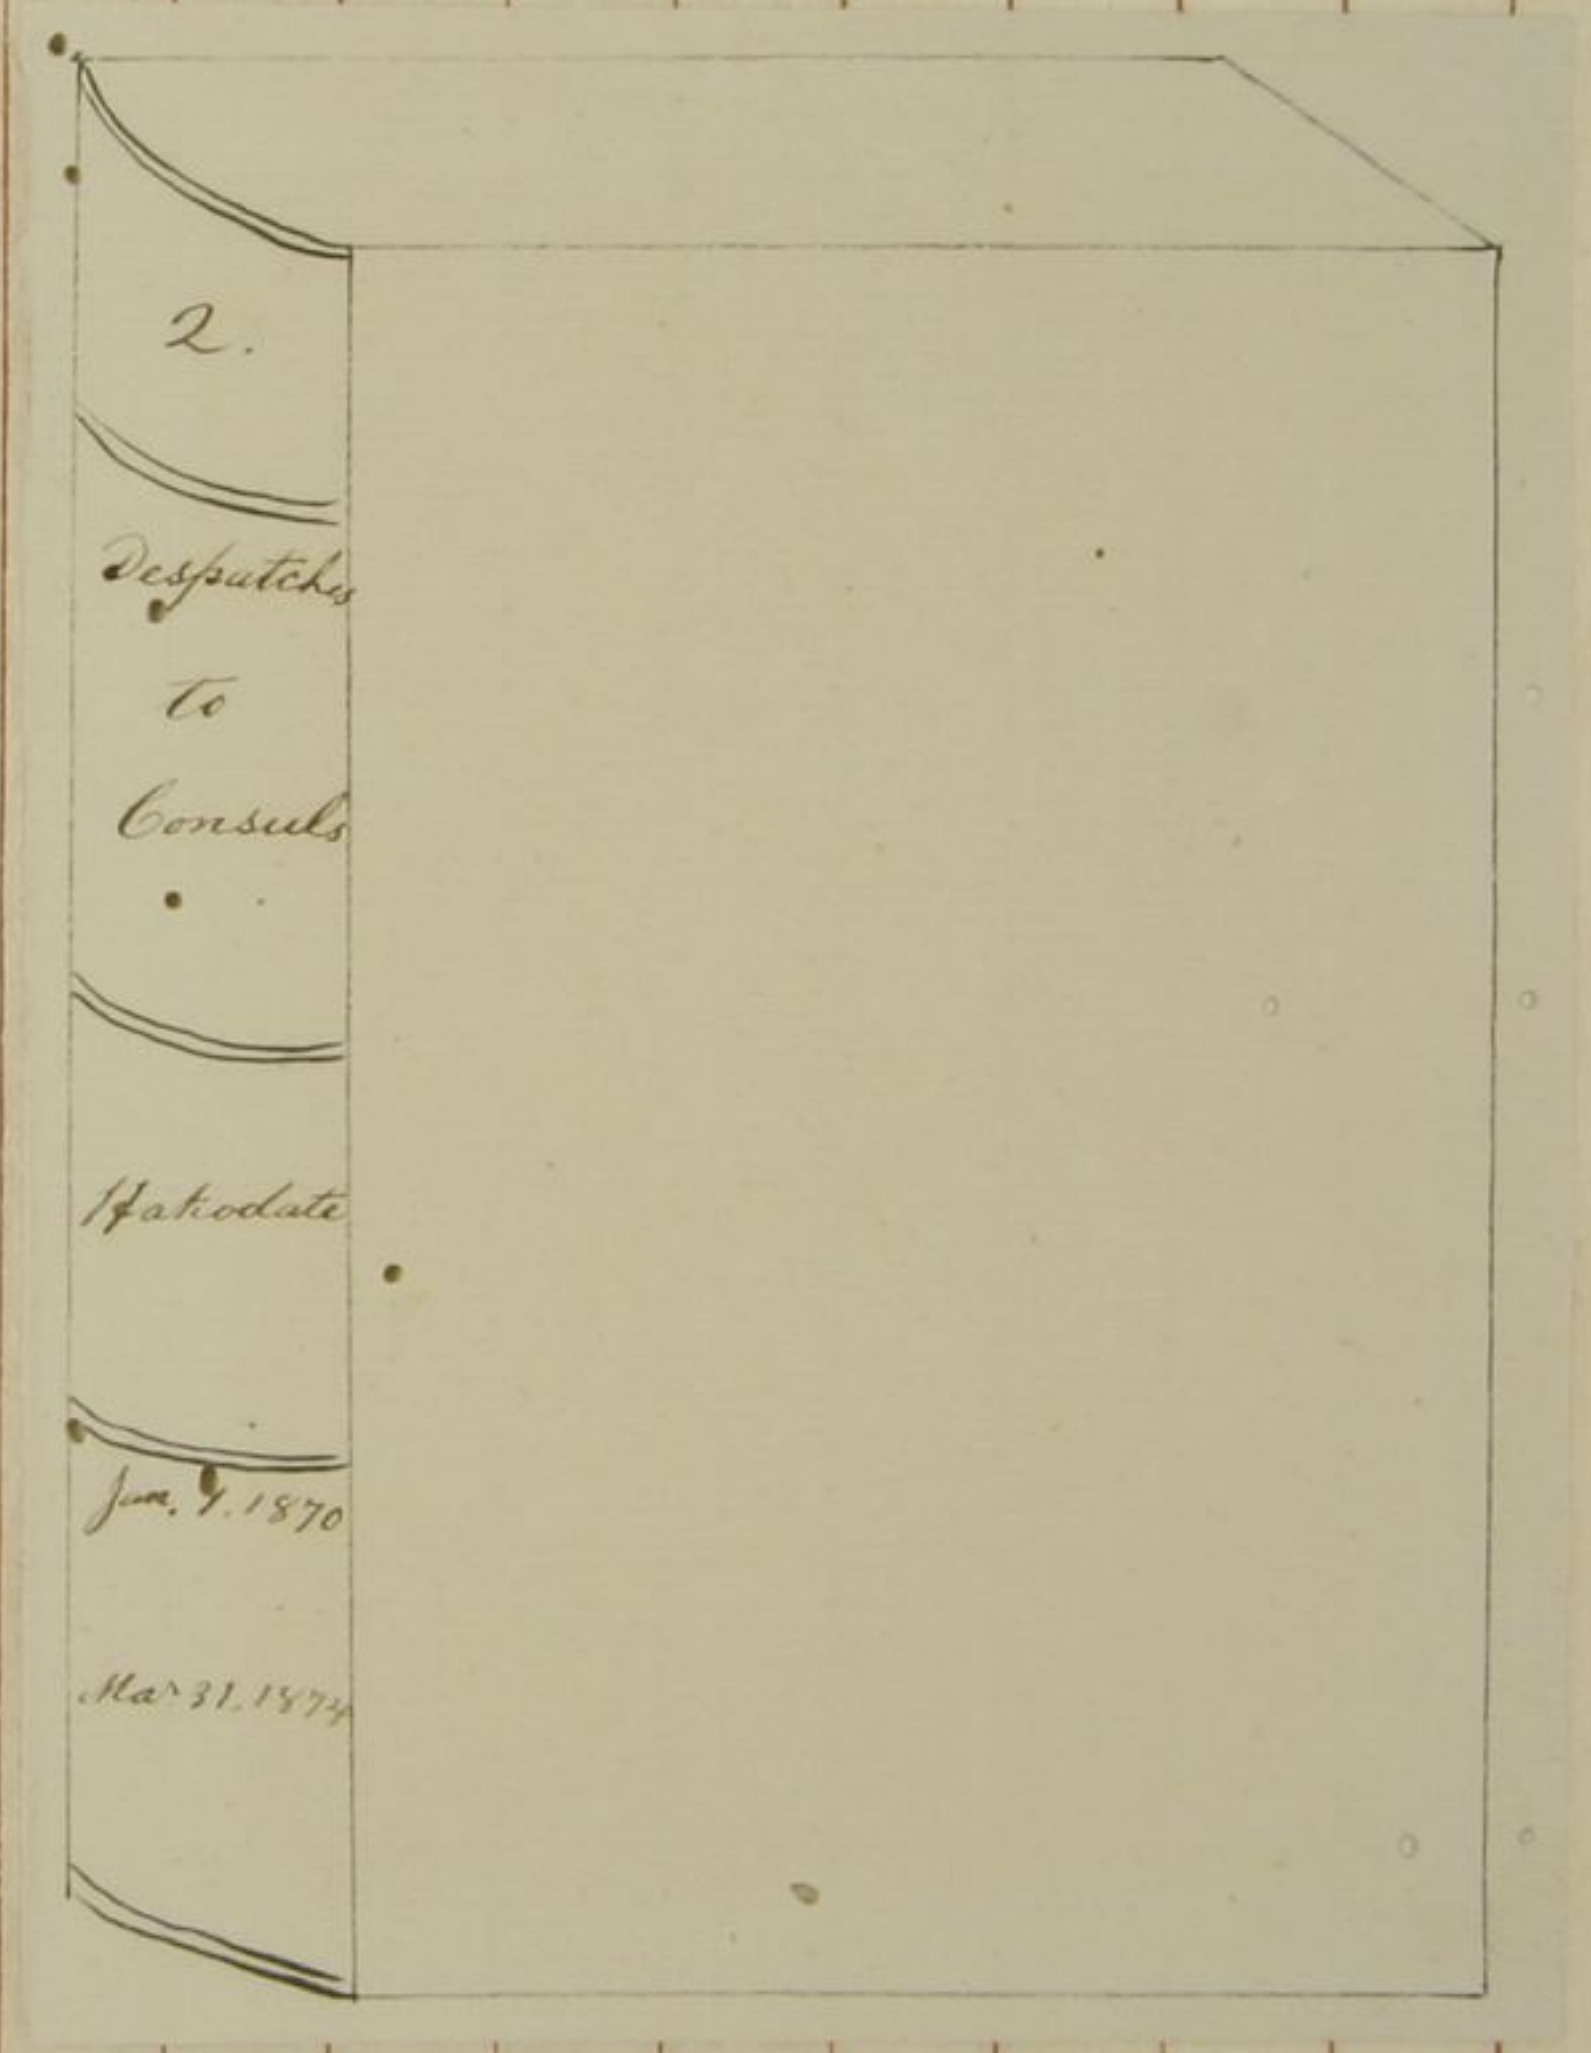 2.
Despatches
to
Consuls
Hakodate
Jan. 1870
Mar 31. 1874